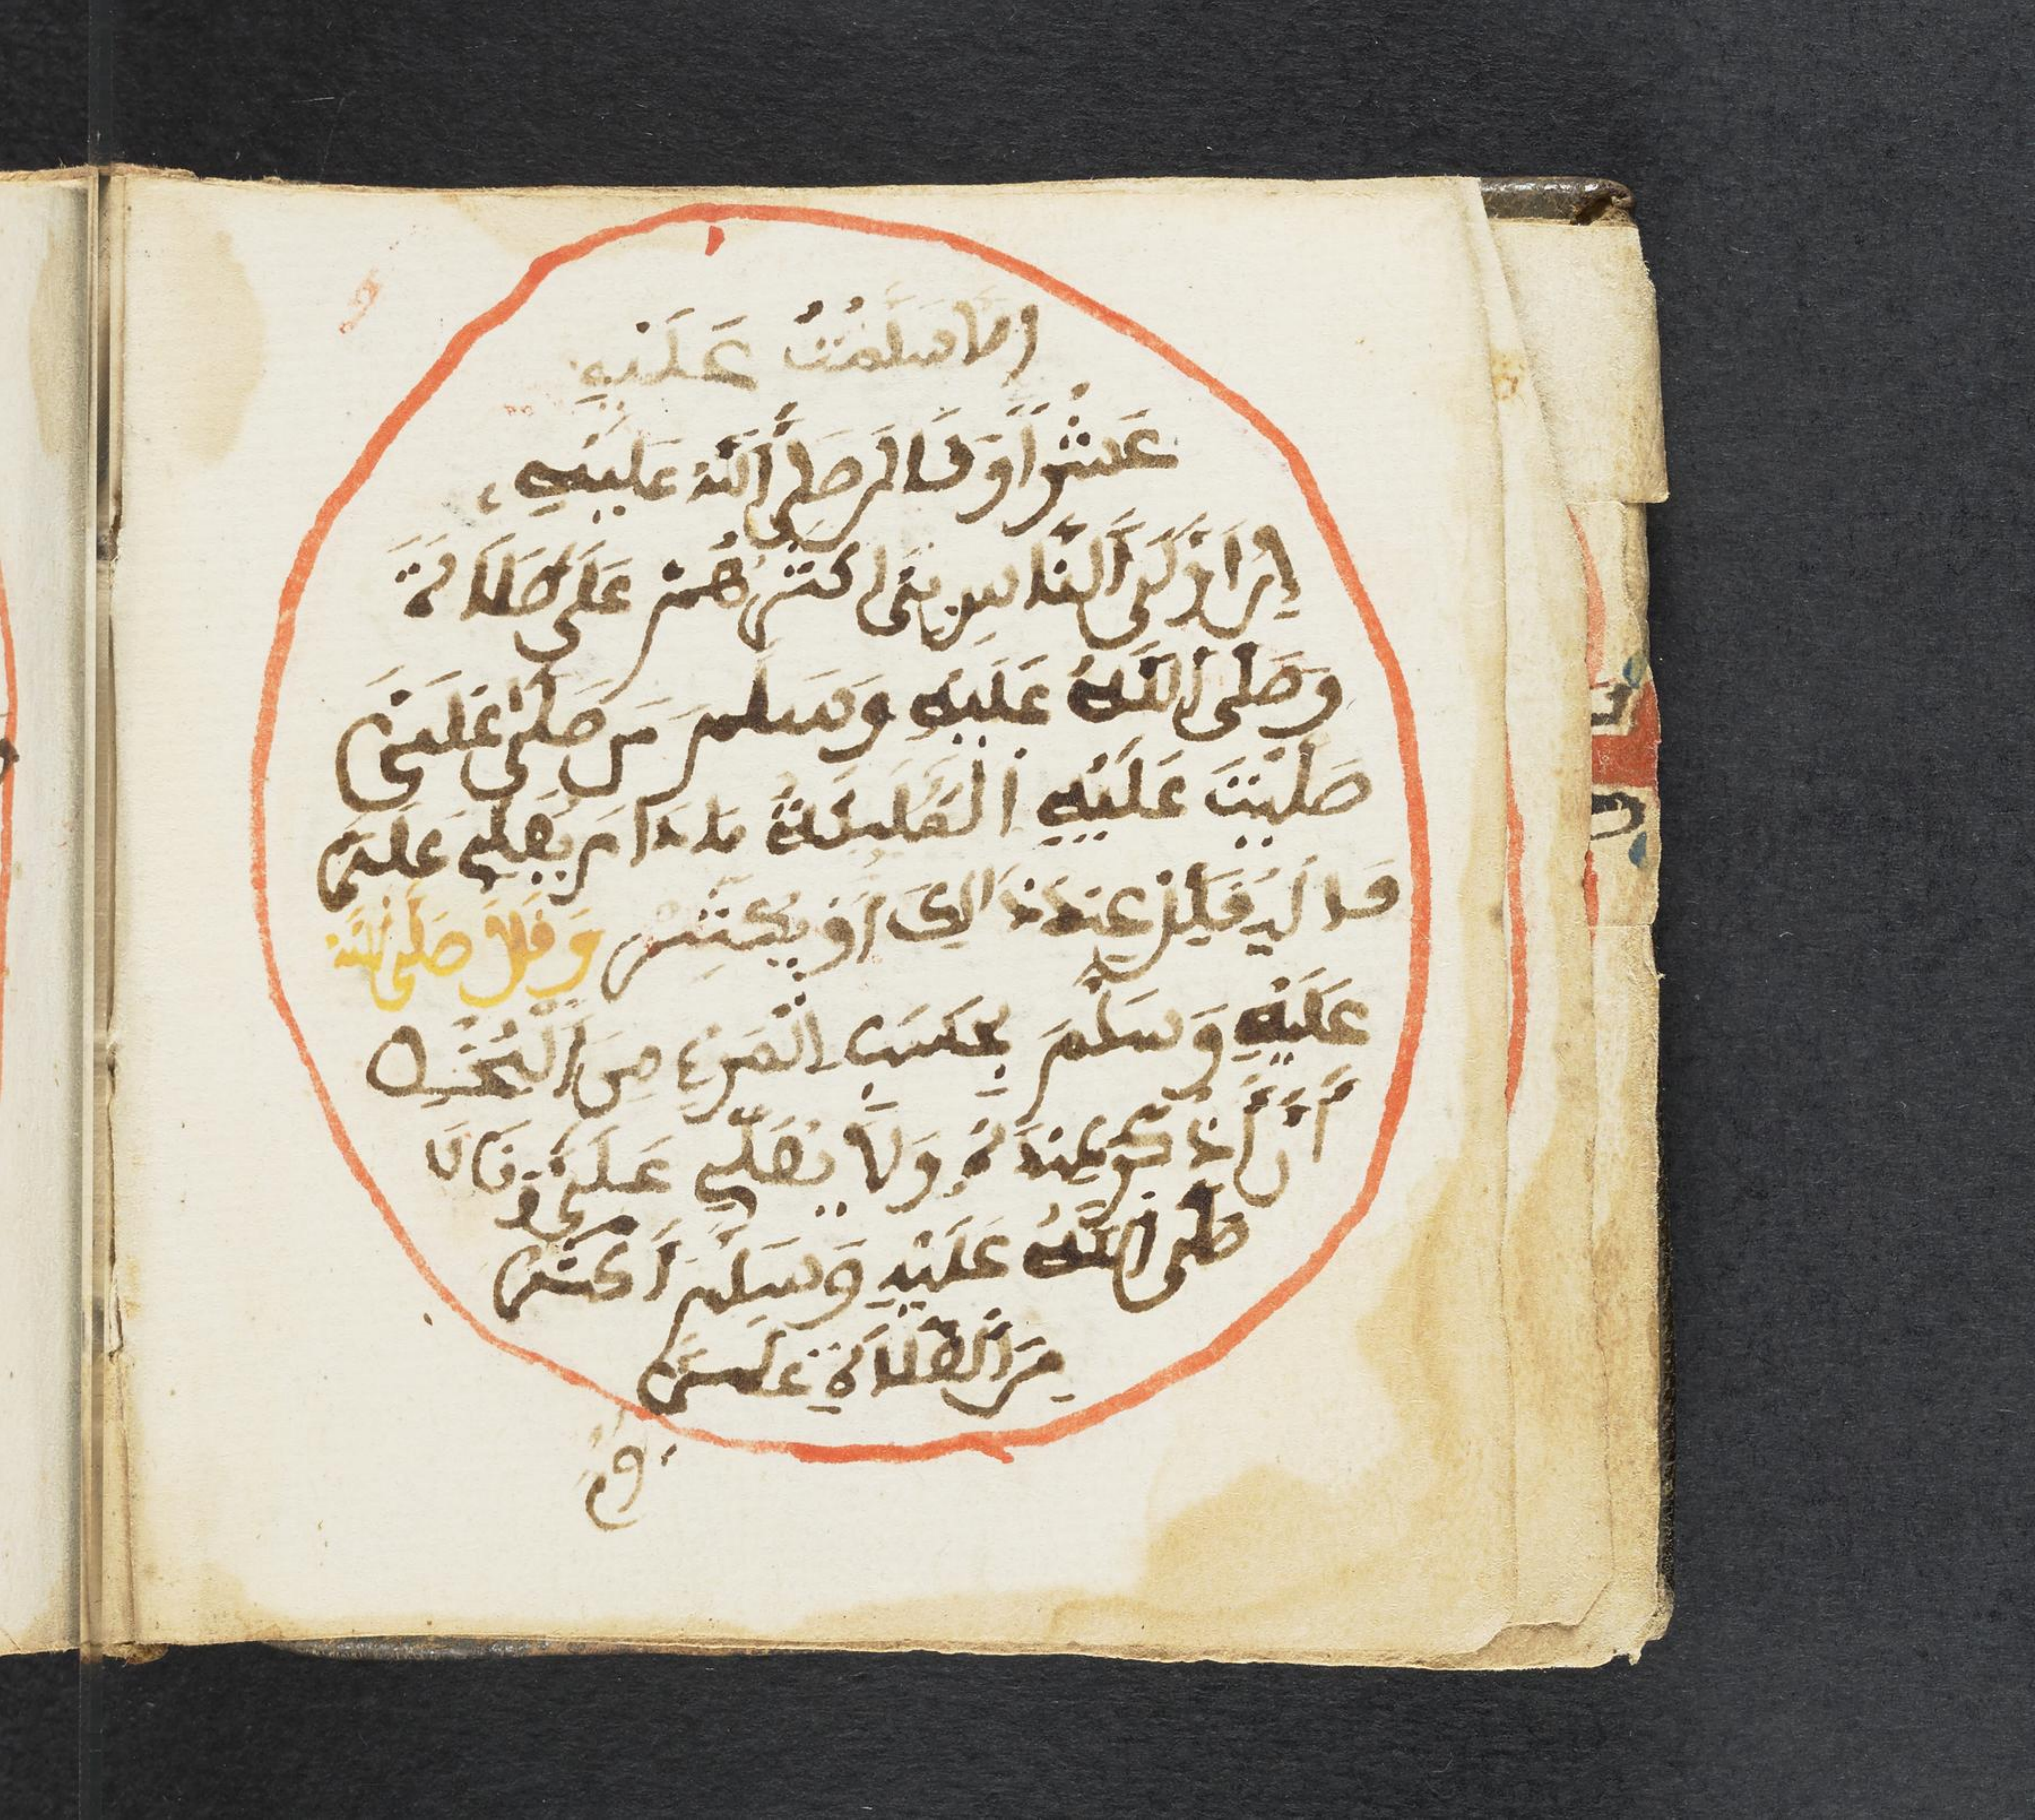 إلا سلمت عليه
عشرا وقال صلى الله عليه
إن أولى الناس بي أكثرهم علي صلاة
وصلى الله عليه وسلم من صلى علي
صلت عليه الملائكة ما دام يصلي علي
فاليقلل عند ذالك أو يكثر وقال صلى الله
عليه وسلم بحسب المرء من البخل
أن أذكر عنده ولا يصلي علي وقال
صلى الله عليه وسلم أكثروا
من الصلاة علي